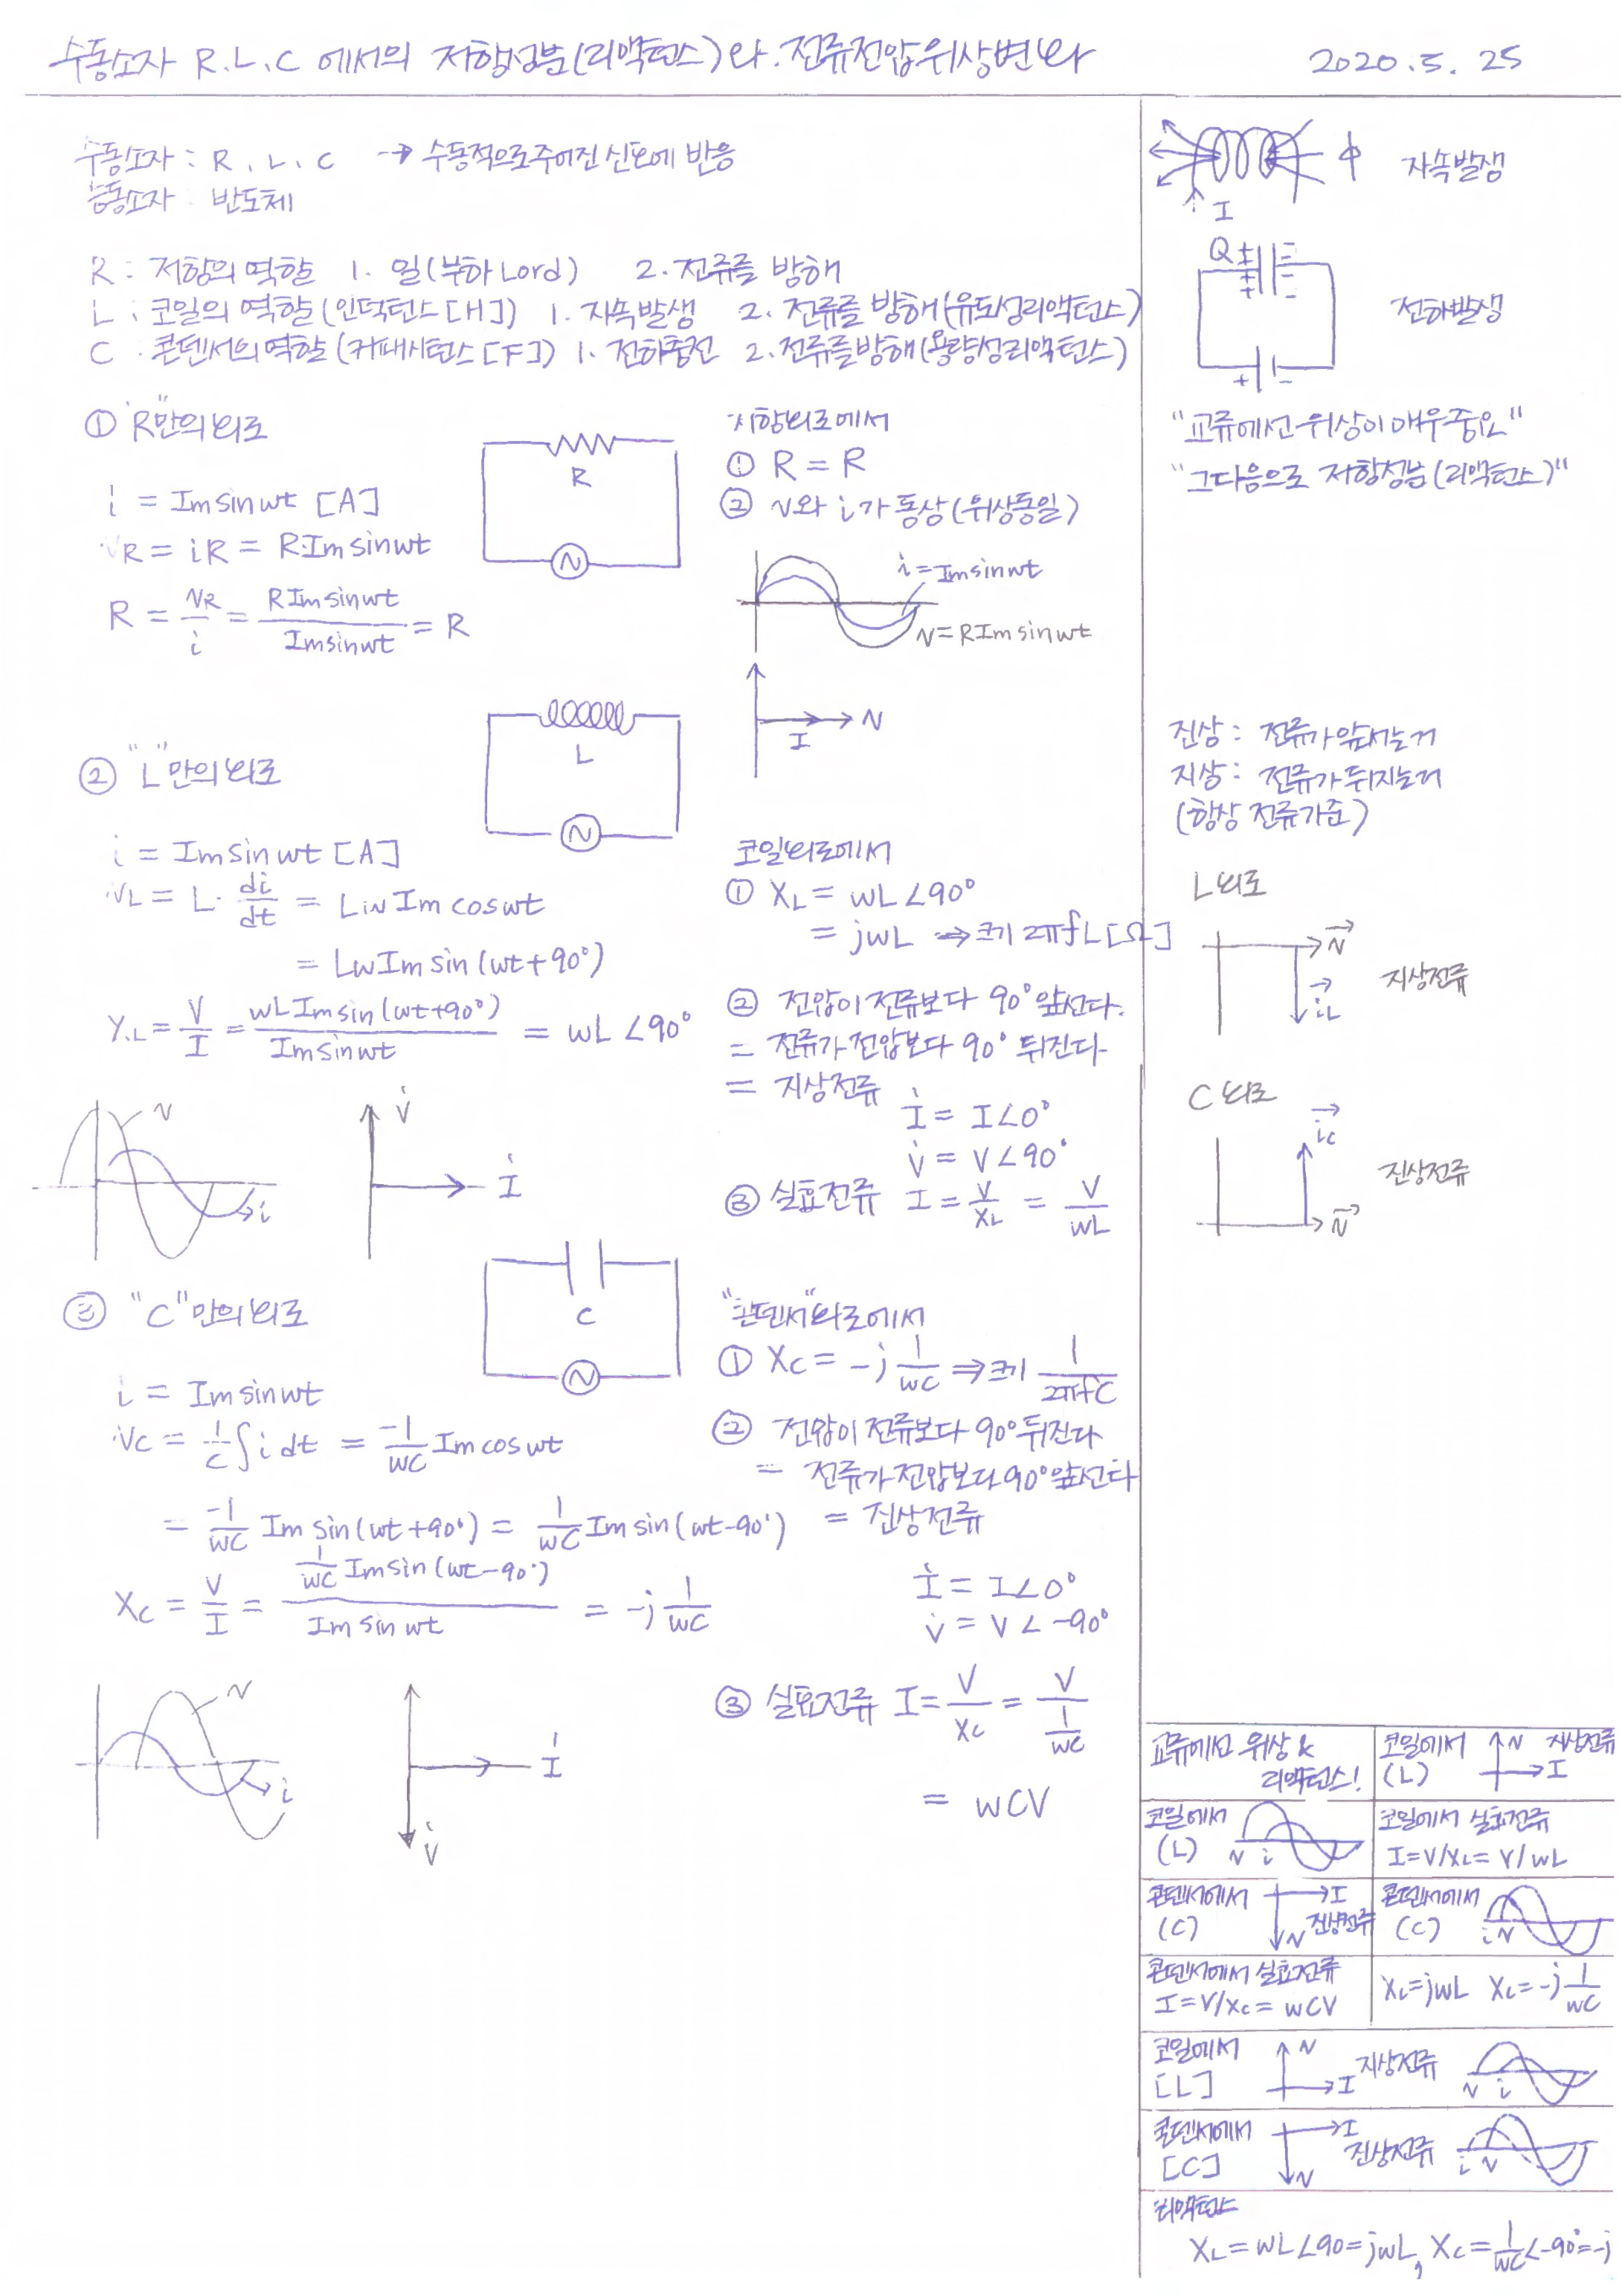 수동소자 R.L.C 에서의 저항성분(리액턴스)와 전류전압위상변화
2020.5.25
수동소자 : R.L.C → 수동적으로주어진 신호에 반응
능동소자 : 반도체
R : 저항의 역할 1. 일(부하 Lord) 2. 전류를 방해
L : 코일의 역할(인덕턴스[H]) 1. 자속발생 2. 전류를 방해(유도성리액턴스)
C : 콘덴서의 역할(커패시턴스[F]) 1. 전하충전 2. 전류를방해(용량성리액턴스)
① "R"만의 회로
i = Im sin wt [A]
VR = iR = R·Im sin wt
R = VR/i = R Im sin wt / Im sin wt = R
R
저항회로에서
① R = R
② v와 i가 동상(위상동일)
i = Im sin wt
v = R Im sin wt
v
I
② "L"만의 회로
L
i = Im sin wt [A]
VL = L · di/dt = Lw Im cos wt
= Lw Im sin (wt+90°)
X.L = V/I = wL Im sin (wt+90°) / Im sin wt = wL ∠90°
v
i
V
I
코일회로에서
① XL = wL ∠90°
= jwL → 크기 2πfL[Ω]
② 전압이 전류보다 90° 앞선다.
= 전류가 전압보다 90° 뒤진다
= 지상전류
İ = I∠0°
V̇ = V∠90°
③ 실효전류 I = V/XL = V/wL
③ "C"만의 회로
C
i = Im sin wt
VC = 1/C ∫ i dt = -1/wC Im cos wt
= -1/wC Im sin (wt+90°) = 1/wC Im sin (wt-90°)
XC = V/I = 1/wC Im sin (wt-90°) / Im sin wt = -j 1/wC
v
i
I
V
"콘덴서"회로에서
① XC = -j 1/wC ⇒ 크기 1/2πfC
② 전압이 전류보다 90° 뒤진다
= 전류가 전압보다 90° 앞선다
= 진상전류
İ = I∠0°
V̇ = V∠-90°
③ 실효전류 I = V/XC = V / 1/wC
= wCV
I
ϕ
자속발생
Q
+ -
전하발생
"교류에선 위상이 매우중요"
"그다음으로 저항성분(리액턴스)"
진상 : 전류가 앞서는거
지상 : 전류가 뒤지는거
(항상 전류가준)
L 회로
v
iL
지상전류
C 회로
ic
v
진상전류
교류에선 위상 &
리액턴스!
코일에서
(L)
v
I
지상전류
코일에서
(L)
v i
코일에서 실효전류
I = V/XL = V/wL
콘덴서에서
(C)
I
v
진상전류
콘덴서에서
(C)
i v
콘덴서에서 실효전류
I = V/Xc = wCV
XL = jwL XC = -j 1/wC
코일에서
[L]
v
I
지상전류
v i
콘덴서에서
[C]
I
v
진상전류
i v
리액턴스
XL = wL∠90 = jwL, XC = 1/wC ∠-90° = -j